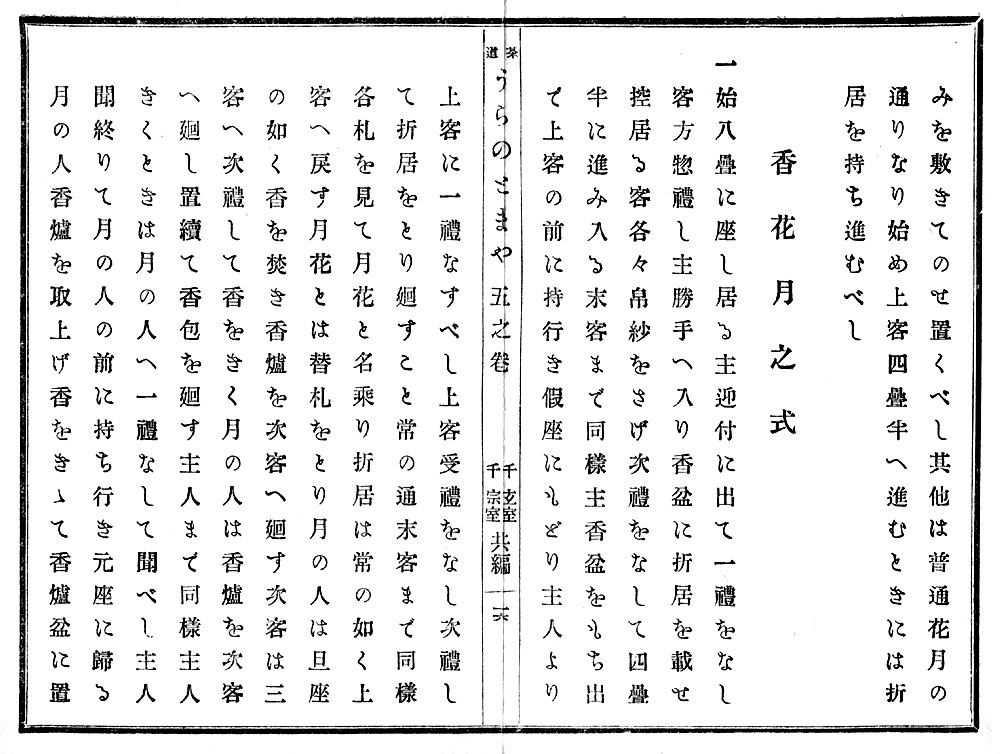 みを敷きてのせ置くべし其他は普通花月の
通りなり始め上客四疊半へ進むときには折
居を持ち進むべし
香花月之式
一始八疊に座し居る主迎付に出て一禮をなし
客方惣禮し主勝手へ入り香盆に折居を載せ
控居る客各々帛紗をさげ次禮をなして四疊
半に進み入る末客まで同樣主香盆をもち出
で上客の前に持行き假座にもどり主人より
茶道うらのとまや五之卷
千玄室
千宗室
共編
一六
上客に一禮なすべし上客受禮をなし次禮し
て折居をとり廻すこと常の通末客まで同樣
各札を見て月花と名乘り折居は常の如く上
客へ戾す月花とは替札をとり月の人は旦座
の如く香を焚き香爐を次客へ廻す次客は三
客へ次禮して香をきく月の人は香爐を次客
へ廻し置續て香包を廻す主人まで同樣主人
きくときは月の人へ一禮なして聞べし主人
聞終りて月の人の前に持ち行き元座に歸る
月の人香爐を取上げ香をきゝて香爐盆に置